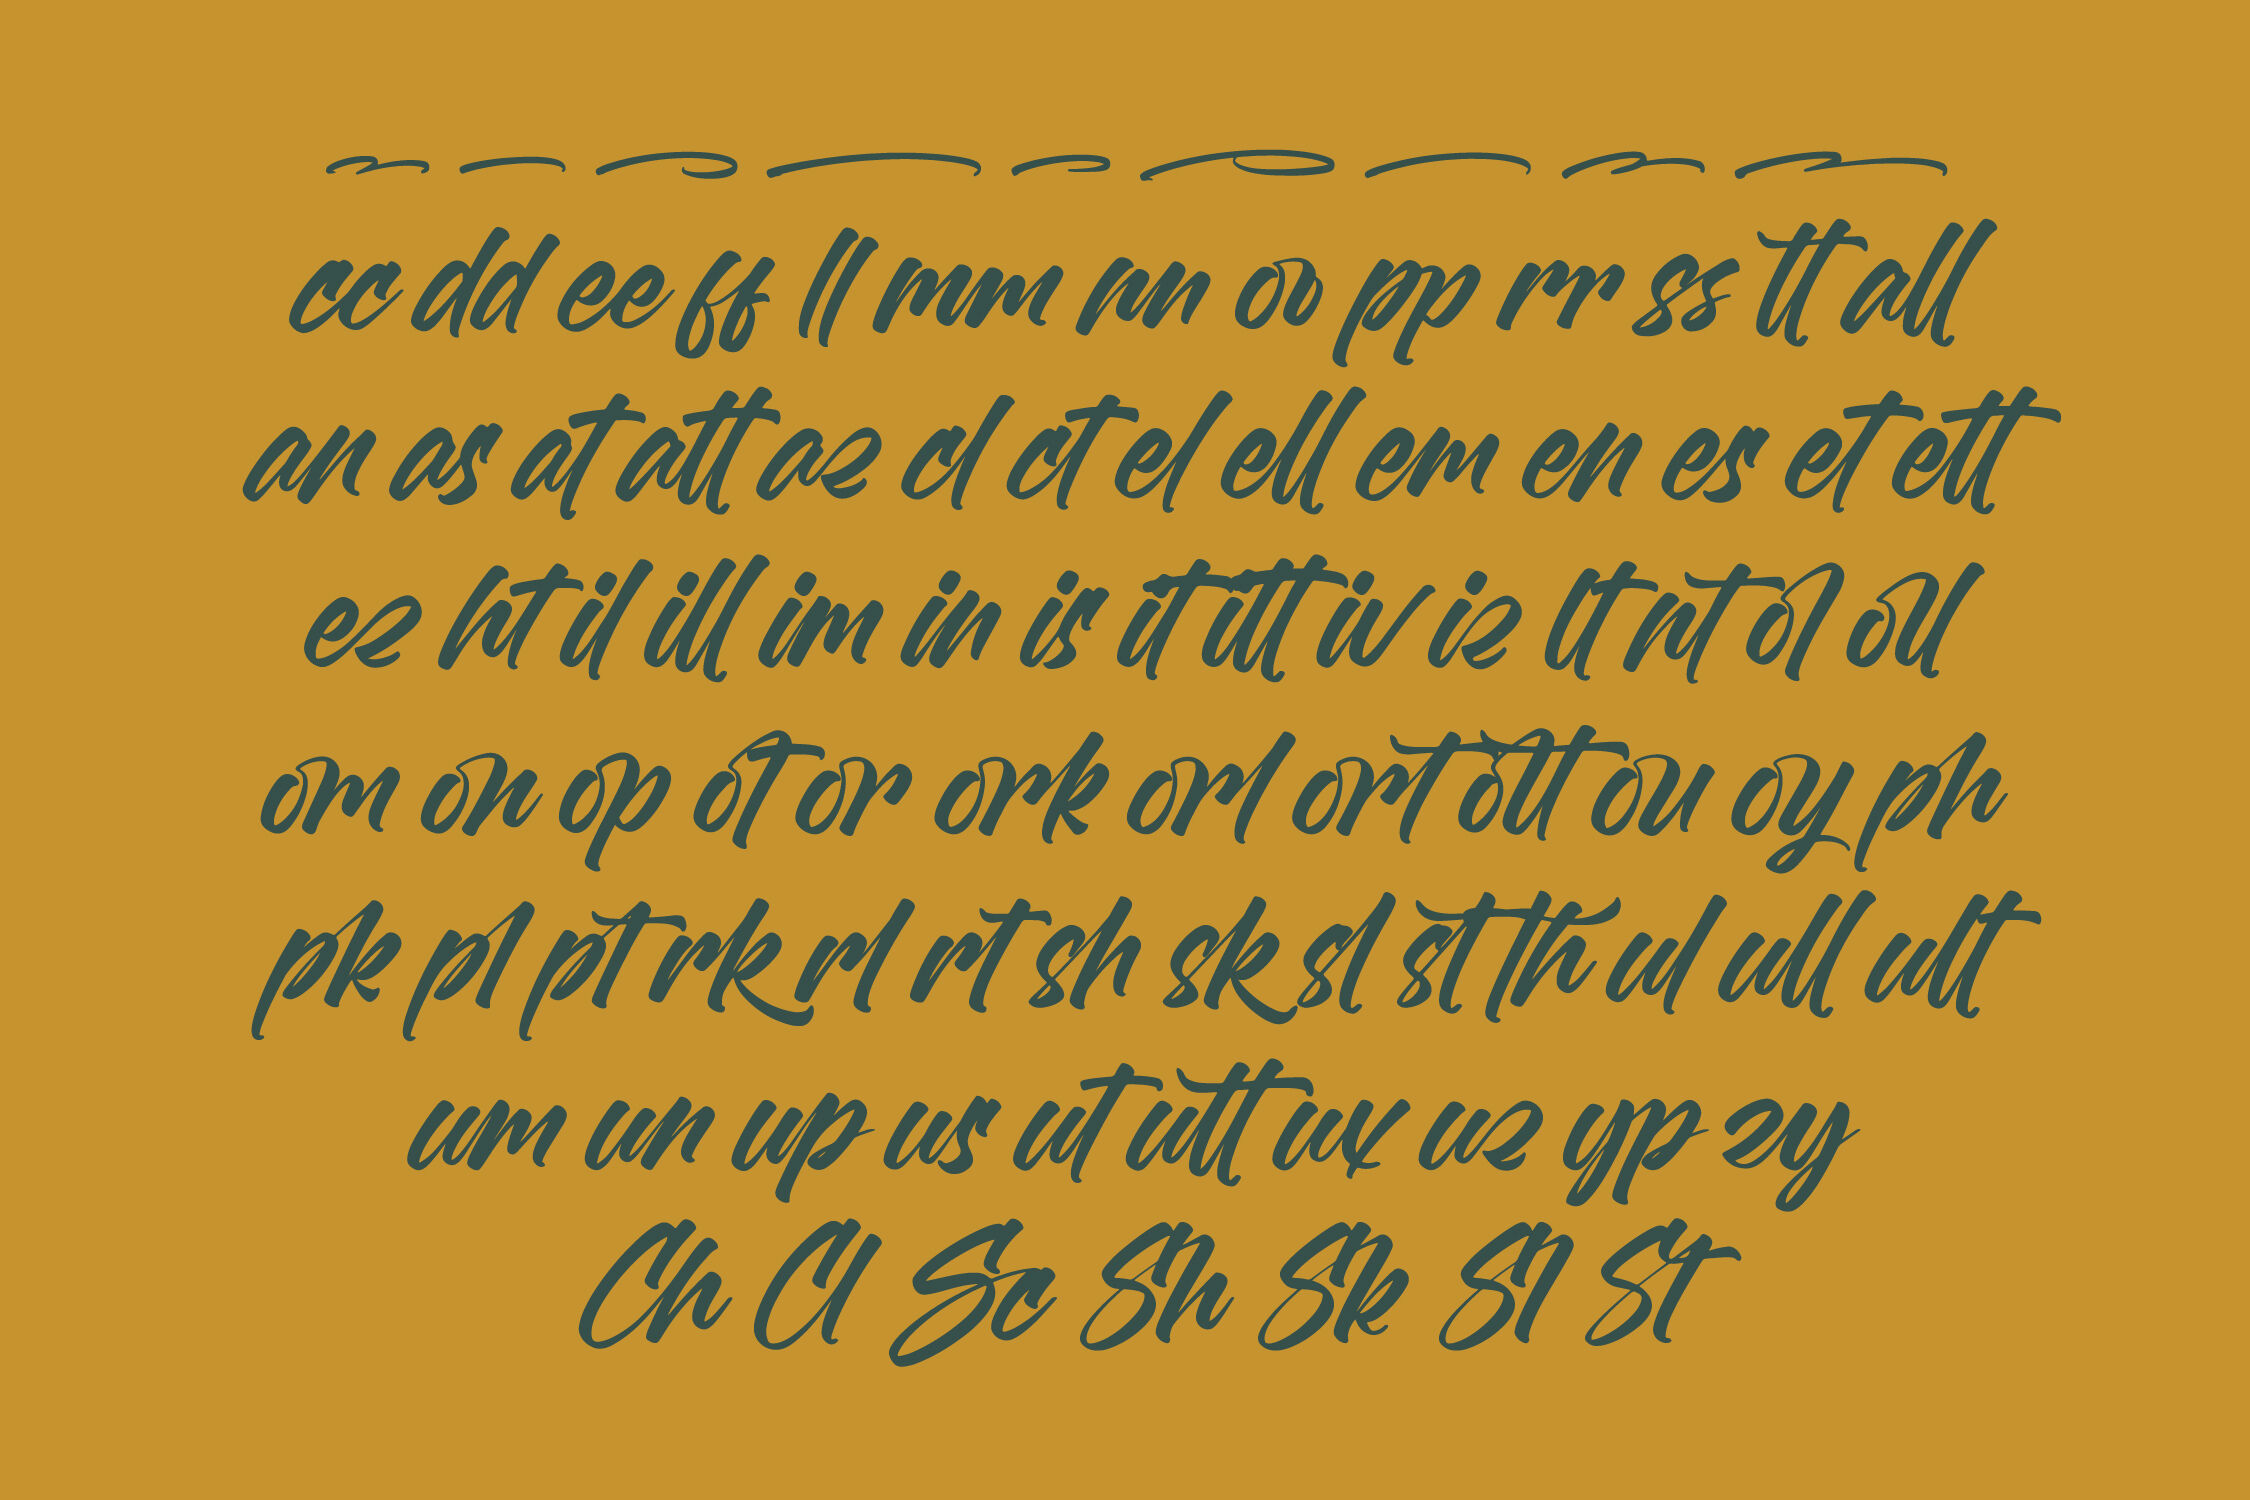 cc dd ee ff ll mm nn oo pp rr ss tt all
an as at att az cl ct el ell em en es et ett
ez ht il ill im in is it itt iv iz lt nt ol oll
om on op ot or ork orl ort ott ou oy ph
pk pl pt rk rl rt sh sk sl st th ul ull ult
um un up us ut utt ux uz yp zy
Ch Cl Sa Sh Sk Sl St